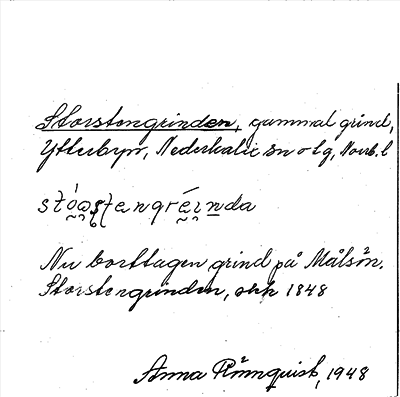 Storstengrinden, gammal grind,
Ytterbyn, Nederkalix sn o tg, Norrb. l
Nu borttagen grind på Målsön.
Storstengrinden, ohk 1848
Anna Rönnquist, 1948